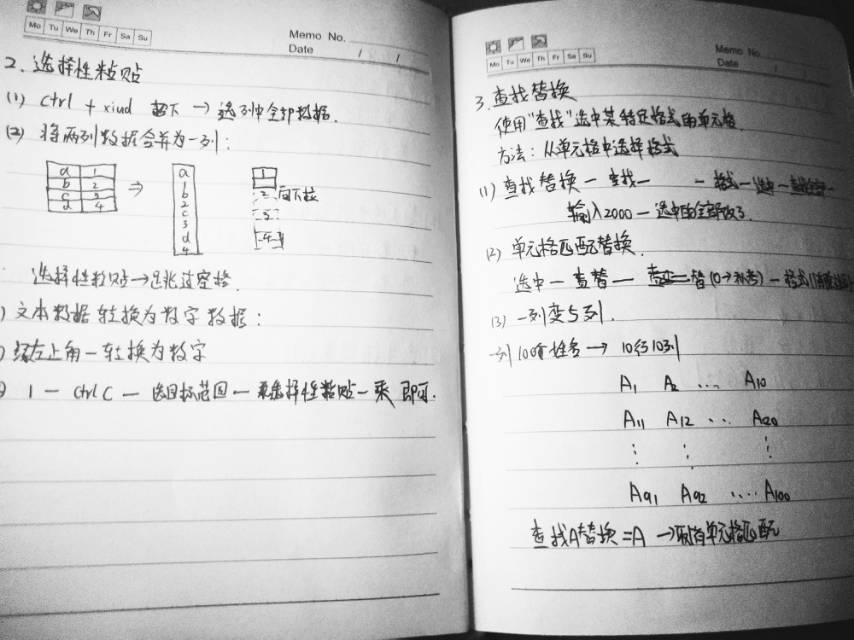 Mo Tu We Th Fr Sa Su
Memo No.
Date / /
2. 选择性粘贴
(1) ctrl + 向下 → 选列中全部数据.
(2) 将两列数据合并为一列:
a 1
b 2
c 3
d 4
⇒
a
1
b
2
c
3
d
4
1
2
3
4
向下拉
选择性粘贴→跳过空格.
) 文本数据转换为数字数据:
左上角一转换为数字
1 — ctrl C — 选目标范围 — 选择性粘贴 — 乘 即可.
Mo Tu We Th Fr Sa Su
Memo No.
Date / /
3. 查找替换
使用“查找”选中某特定格式的单元格
方法: 从单元格中选择格式
(1) 查找替换 — 查找 —
输入2000 — 选中的全部改了.
(2) 单元格匹配替换.
选中 — 查替 — 替(0→补考) — 格式
(3) 一列变多列.
一列100个姓名 → 10行10列
A1 A2 ... A10
A11 A12 ... A20
⋮ ⋮ ⋮
A91 A92 .... A100
查找A替换=A → 取消单元格匹配